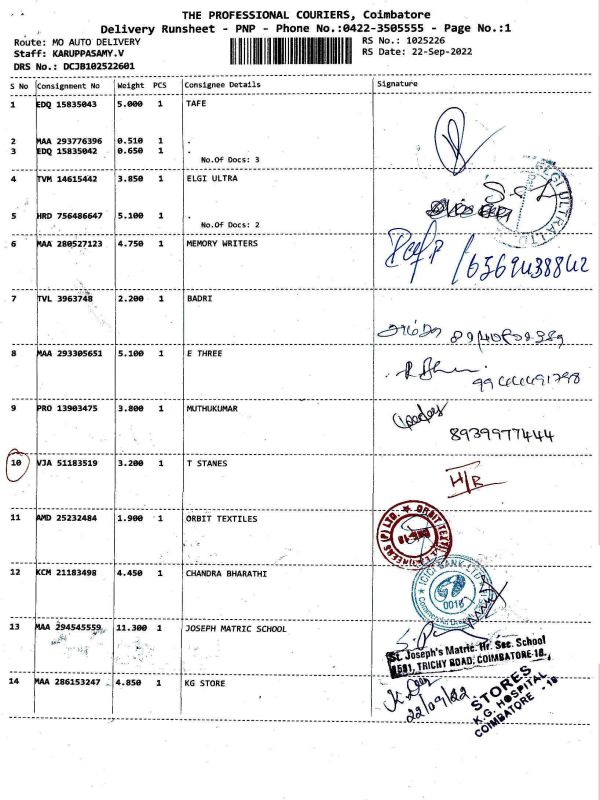 THE PROFESSIONAL COURIERS, Coimbatore
Delivery Runsheet - PNP - Phone No.:0422-3505555 - Page No.:1
Route: MO AUTO DELIVERY
RS No.: 1025226
Staff: KARUPPASAMY.V
RS Date: 22-Sep-2022
DRS No.: DCJB102522601
S No Consignment No Weight PCS Consignee Details Signature
1 EDQ 15835043 5.000 1 TAFE
2 MAA 293776396 0.510 1 .
3 EDQ 15835042 0.650 1 .
No.Of Docs: 3
4 TVM 14615442 3.850 1 ELGI ULTRA
ELGI ULTRA LTD
5 HRD 756486647 5.100 1 .
No.Of Docs: 2
6 MAA 280527123 4.750 1 MEMORY WRITERS
7 TVL 3963748 2.200 1 BADRI
8 MAA 293305651 5.100 1 E THREE
9 PRO 13903475 3.800 1 MUTHUKUMAR
8939977444
10 VJA 51183519 3.200 1 T STANES
H/B
11 AMD 25232484 1.900 1 ORBIT TEXTILES
12 KCM 21183498 4.450 1 CHANDRA BHARATHI
ICICI BANK LTD
0016
13 MAA 294545559 11.300 1 JOSEPH MATRIC SCHOOL
St. Joseph's Matric. Hr. Sec. School
TRICHY ROAD, COIMBATORE-18.
14 MAA 286153247 4.850 1 KG STORE
22/09/22
STORES
K.G. HOSPITAL
COIMBATORE - 18